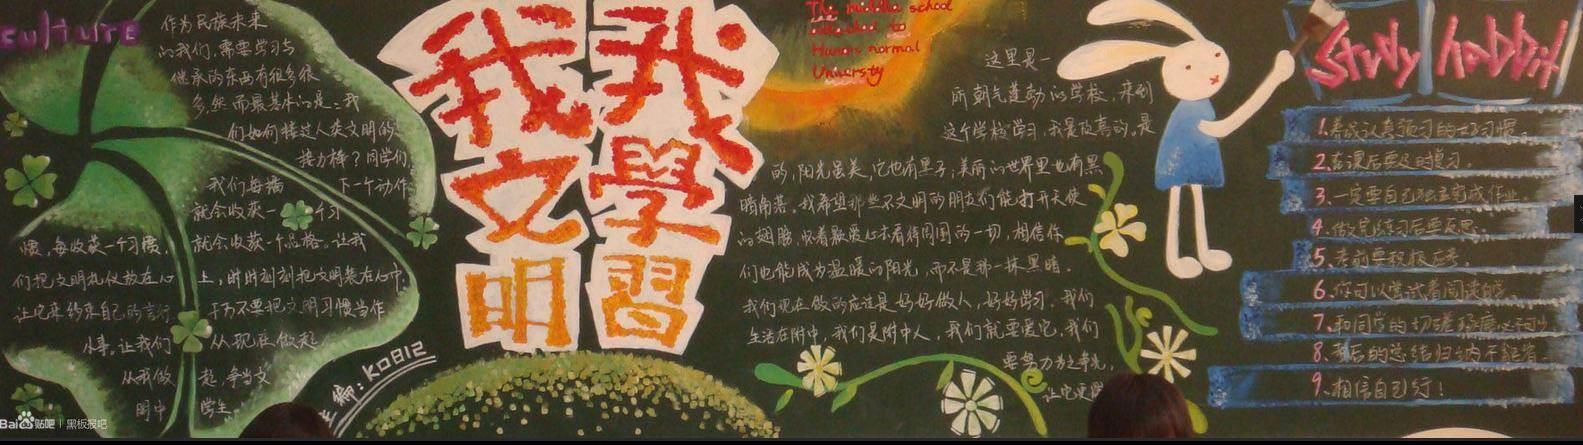 culture
作为民族未来
的我们,需要学习与
继承的东西有很多很
多,然而最基本的是:我
们如何接过人类文明的
接力棒?同学们
我们每播 下一个动作
就会收获一 个习
惯,每收获一个习惯, 就会收获一个品格。让我
们把文明礼仪放在心 上,时时刻刻把文明装在心中,
让它来约束自己的言行 千万不要把文明习惯当作
小事,让我们 从现在做起
从我做 起,争当文
明中 学生
主编:K0812
我文明
我學習
The middle school
attached to
Hunan normal
University
这里是一
所朝气蓬勃的学校,来到
这个学校学习,我是欣喜的,是
的,阳光虽美,它也有黑子,美丽的世界里也有黑
暗角落。我希望那些不文明的朋友们能打开天使
的翅膀,怀着颗爱心去看待周围的一切,相信你
们也能成为温暖的阳光,而不是那一抹黑暗。
我们现在做的应该是好好做人,好好学习,我们
生活在附中,我们是附中人,我们就要爱它,我们
要努力为之争光,
让它更
Study habbit
1.养成认真预习的好习惯。
2.在课后要及时复习。
3.一定要自己独立完成作业。
4.做完练习后要反思。
5.考前要积极应考。
6.你可以尝试着阅读
7.和同学的切磋琢磨必不可少
8.考后的总结归纳不能省。
9.相信自己行!
Bai贴吧|黑板报吧